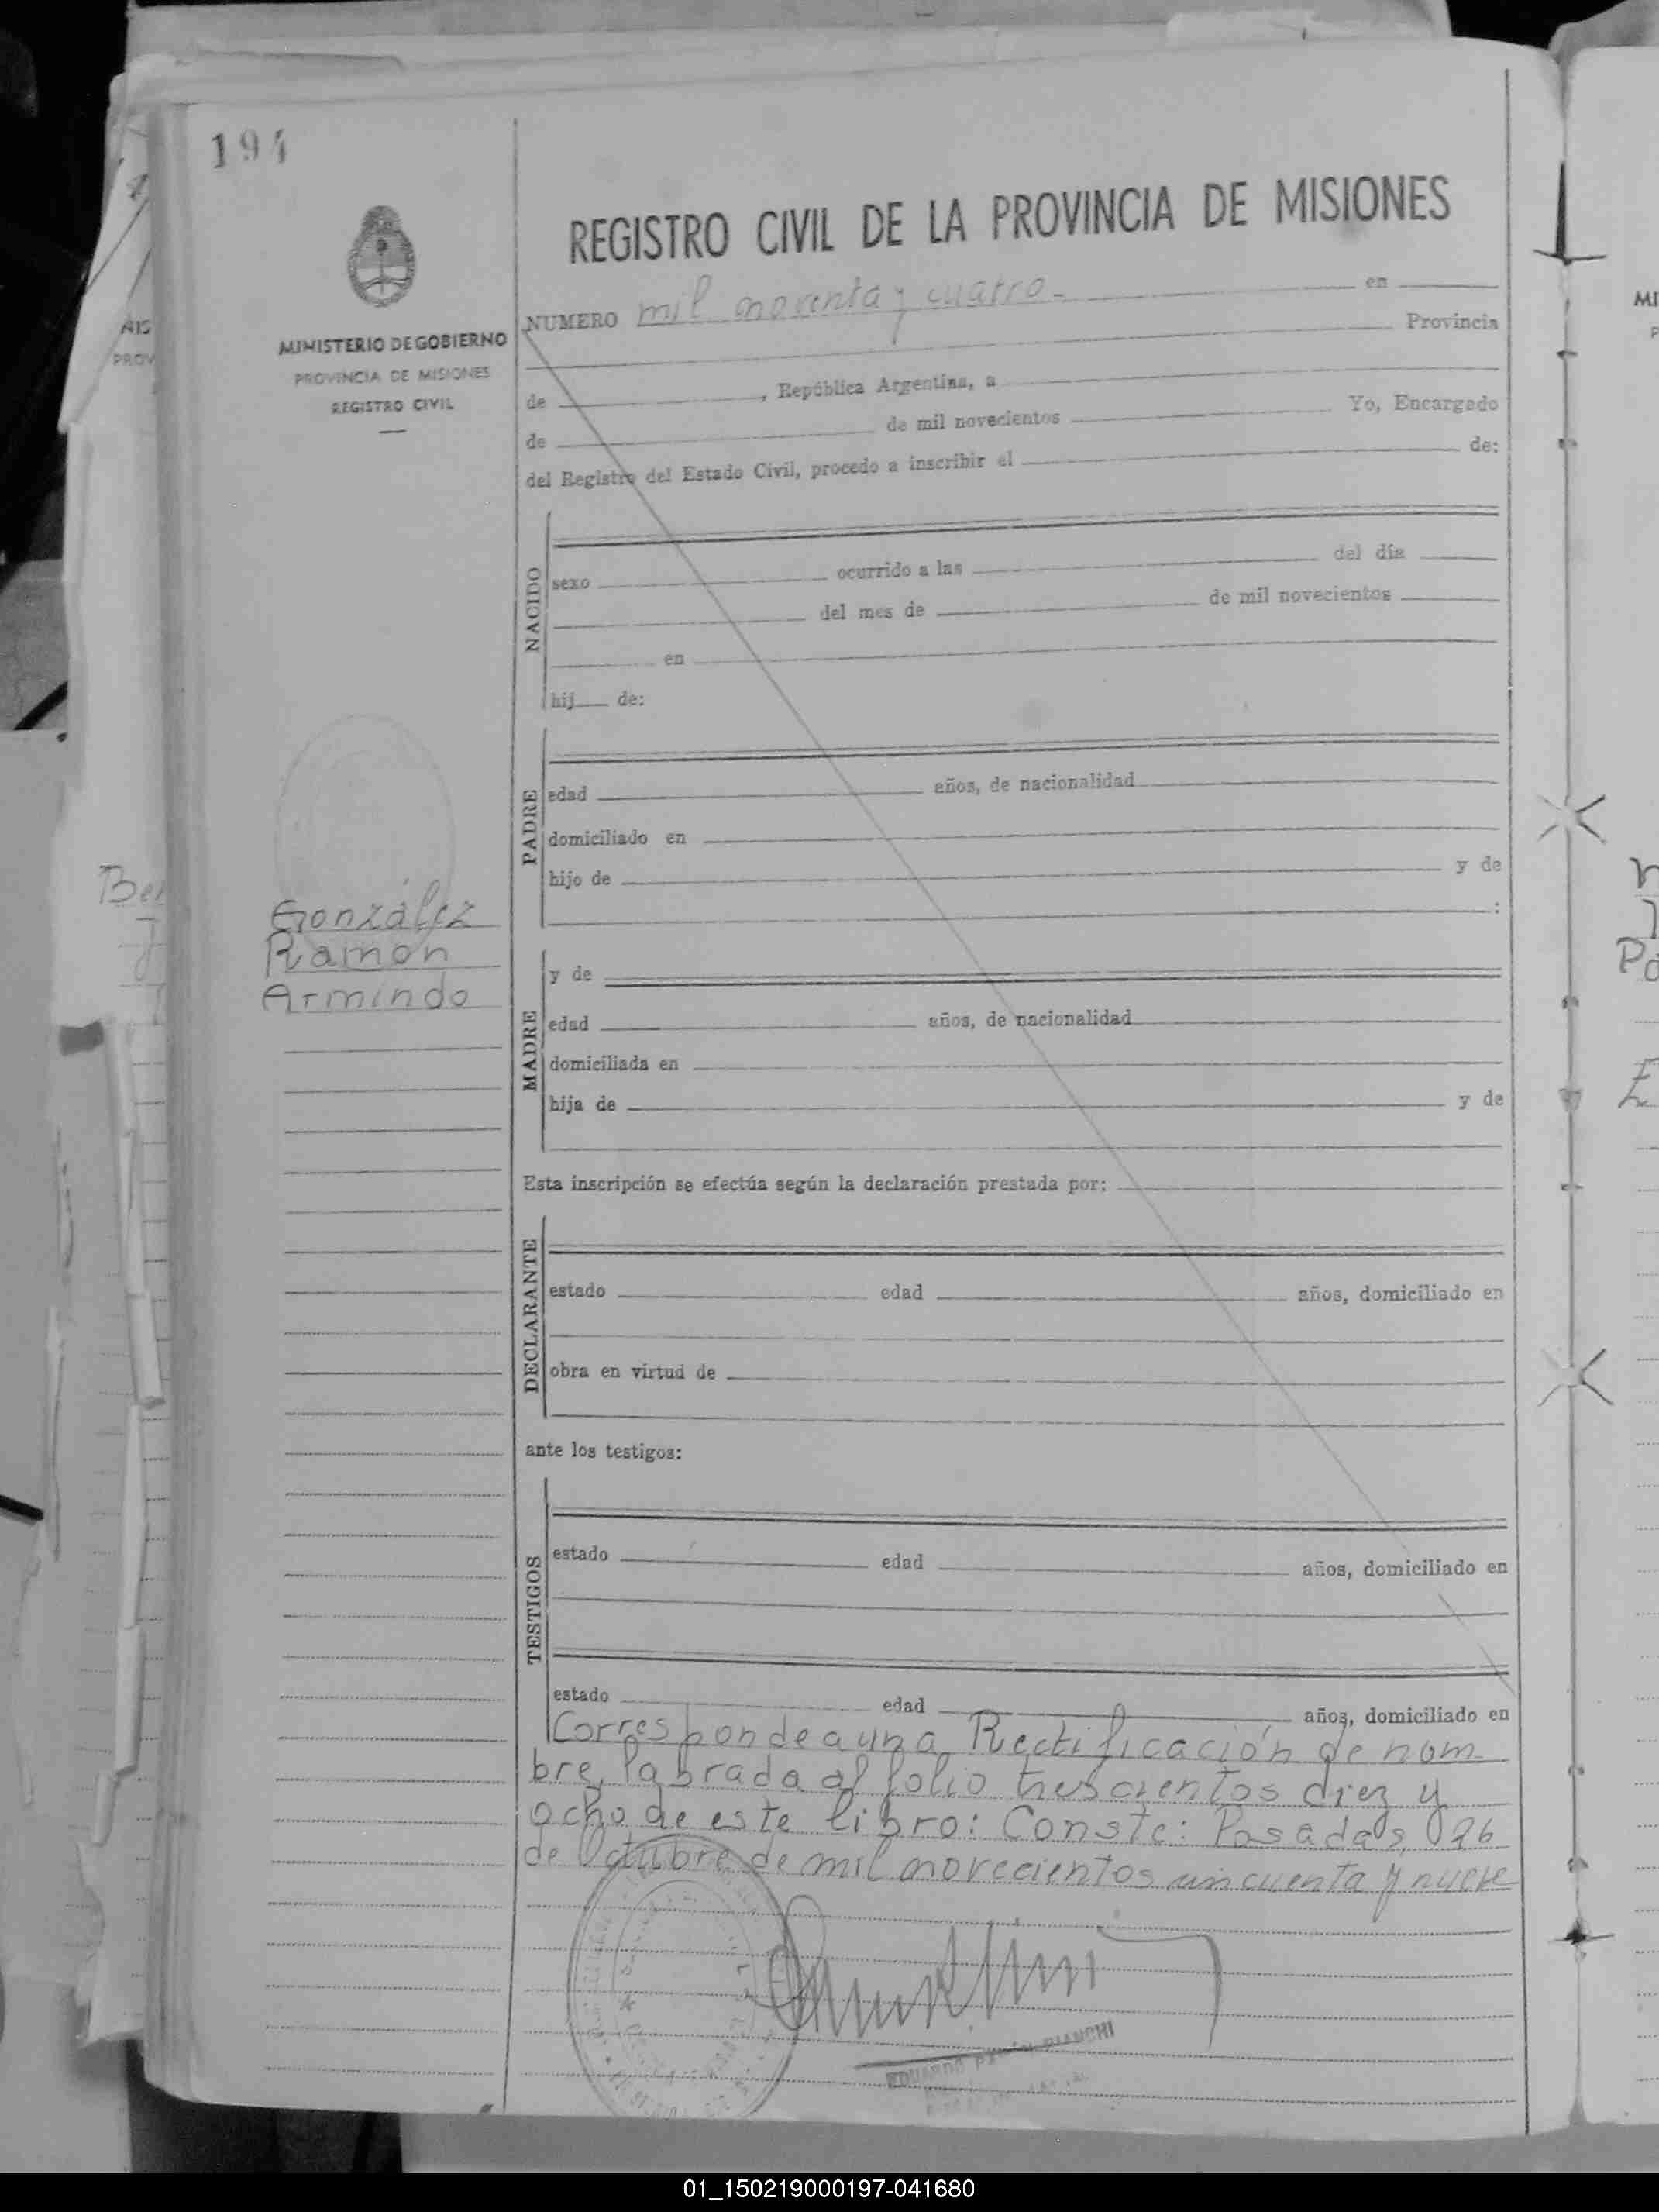 194
REGISTRO CIVIL DE LA PROVINCIA DE MISIONES
MINISTERIO DE GOBIERNO
PROVINCIA DE MISIONES
REGISTRO CIVIL
NUMERO mil noventa y cuatro.- en
Provincia
de , República Argentina, a
de de mil novecientos Yo, Encargado
del Registro del Estado Civil, procedo a inscribir el de:
NACIDO
sexo ocurrido a las del día
del mes de de mil novecientos
en
hij de:
PADRE
edad años, de nacionalidad
domiciliado en
hijo de y de
:
González
Ramón
Armindo
MADRE
y de
edad años, de nacionalidad
domiciliada en
hija de y de
Esta inscripción se efectúa según la declaración prestada por:
DECLARANTE
estado edad años, domiciliado en
obra en virtud de
ante los testigos:
TESTIGOS
estado edad años, domiciliado en
estado edad años, domiciliado en
Corresponde a una Rectificación de nom-
bre, labrada al folio trescientos diez y
ocho de este libro: Conste: Posadas, 26
de Octubre de mil novecientos cincuenta y nueve
EDUARDO BIANCHI
01_150219000197-041680